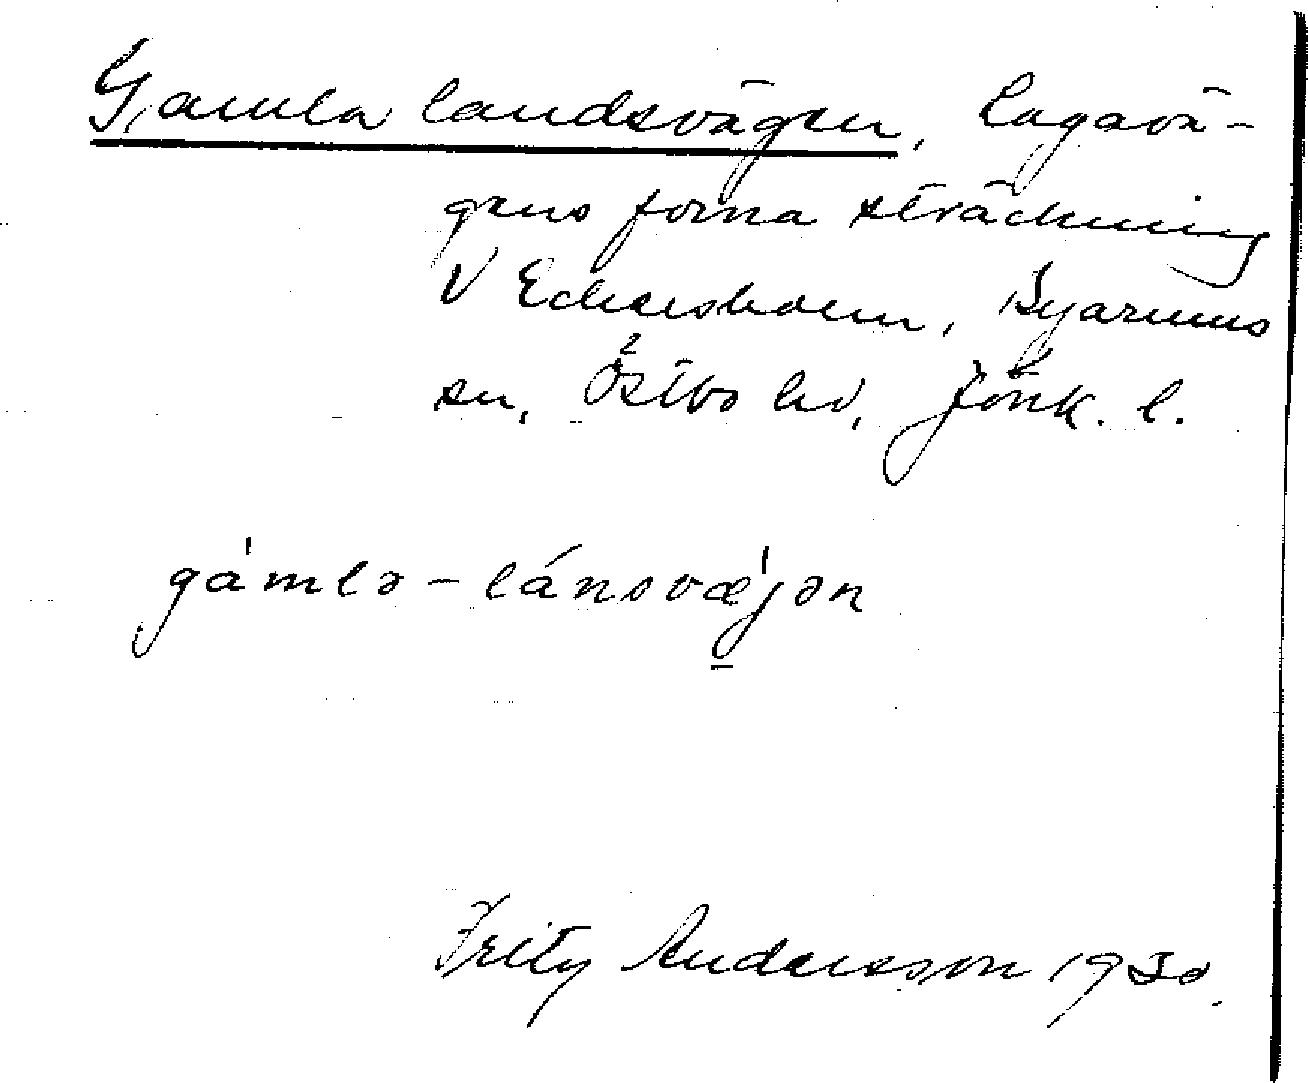 Gamla landsvägen, Lagavä-
gens forna sträckning
V Eckersholm, Byarums
sn, Östbo hd, Jönk. l.
gámlə - lánsvæ̀jən
Fritz Andersson 1930.